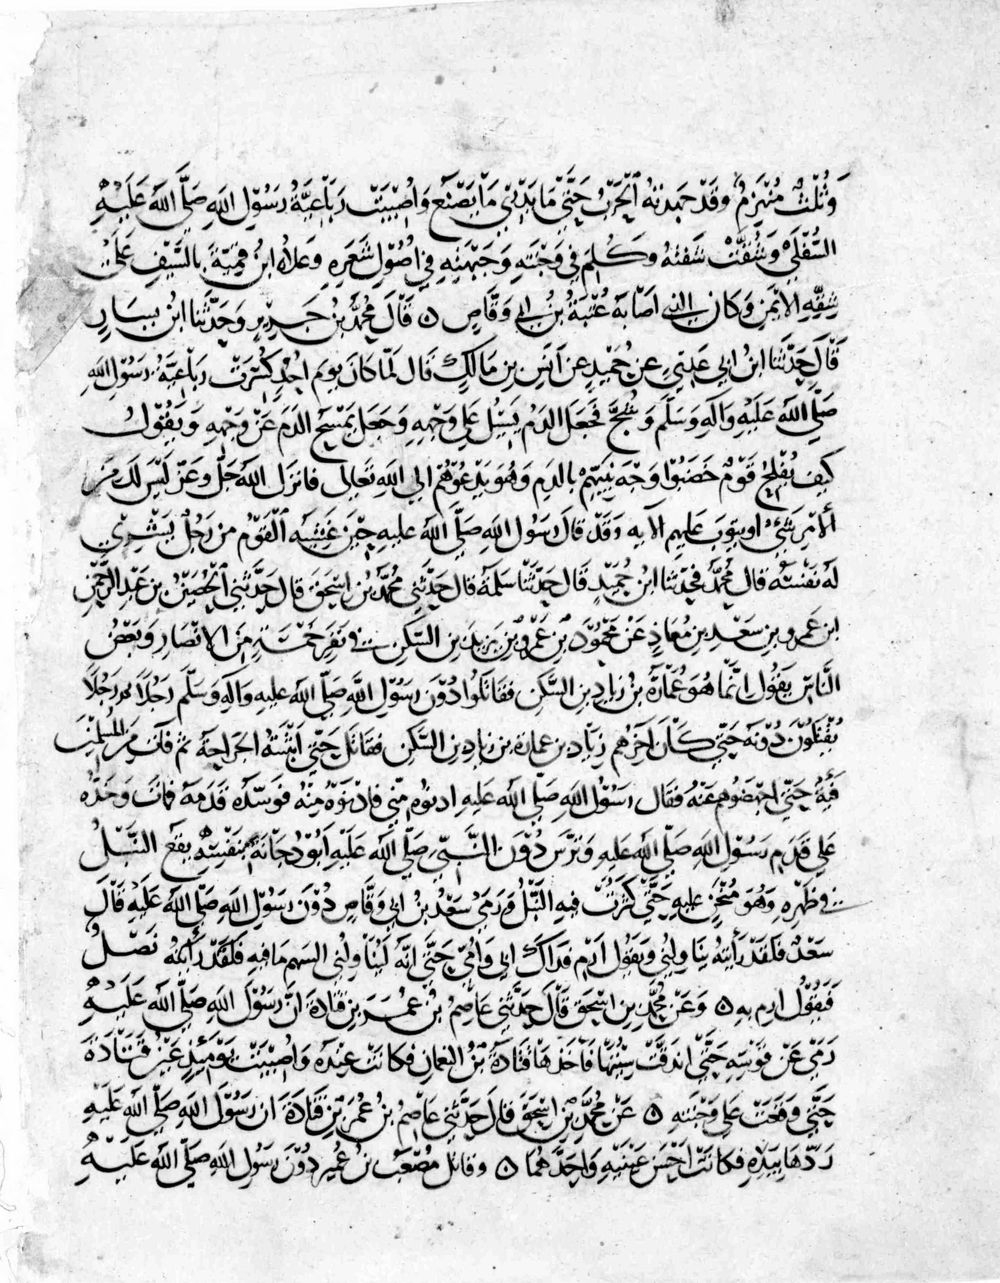 وَثُلُثٌ مُنْهَزِمٌ وقَدْ جَهَدَتْهُ الْحَرْبُ حَتَّى مَا يَدْرِي مَا يَصْنَع وَاُصِيْبَتْ رَبَاعِيَّةُ رَسُوْلِ اللهِ صَلَّى اللهُ عَلَيْهِ
السُّفْلَى وَشُقَّتْ شَفَتُهُ وَكُلِمَ فِي وَجْنَتِهِ وَجَبْهَتِهِ فِي اُصُوْلِ شَعَرِهِ وَعَلاهُ ابنُ قَمِيَّةَ بالسَّيْفِ عَلَى
شِقِّهِ الايْمَنِ وَكان الذي اصَابَهُ عُتْبَةُ بْنُ ابي وَقَّاصٍ ٥ قَالَ مُحَمَّدُ بن جَرِيْرٍ وَحَدَّثَنا ابْنُ بشارٍ
قَالَ حَدَّثَنا ابْنُ ابي عَدِيّ عَنْ حُمَيْدٍ عَنْ أَنَسِ بن مَالِكٍ قَال لَمَّا كانَ يوم اُحُدٍ كُسِرَتْ رَبَاعِيَّةُ رَسُوْلِ اللهِ
صَلَّى اللهُ عَلَيْهِ وَآلِهِ وَسَلَّم وَشُجَّ فَجَعَلَ الدَمُ يَسِيْلُ عَلى وَجْهِهِ وَجَعَلَ يَمْسَحُ الدمَ عَنْ وَجْهِهِ وَيَقُوْلُ
كيفَ يُفْلِحُ قَوْمٌ خَضَبُوْا وَجْهَ نَبِيّهِمْ بالدم وَهُوَ يَدْعُوْهُمْ الى اللهِ تَعَالى فانزَلَ اللهُ جَلَّ وعَزّ لَيْسَ لَكَ مِنَ
الامْرِ شَيْءٌ او يتوبَ عَلَيهم الآيه وَقَدْ قال رَسُول اللهِ صَلَّى اللهُ عليهِ حِيْنَ غَشِيَهُ الْقَوْمُ من رَجُلٌ يَشْرِي
لَهُ نَفْسَهُ قال مُحَمَّدٌ فحَدثنا ابْن حُمَيْدٍ قَال حَدَّثَنَا سَلَمَةُ قال حَدَّثَنِي مُحَمَّدُ بْنُ اسْحَقَ قال حَدَّثَنِي الْحُصَيْنُ بن عَبْدِ الرَّحْمَنِ
ابن عَمرو بن سَعْدِ بن مُعاذٍ عَنْ مَحْمُوْدِ بْنِ عَمْرِو بْنِ يَزِيدَ بن السَّكَنِ في نَفَرٍ خَمْسَةٍ مِنَ الانْصَارِ وَبَعْضُ
النَّاسِ يَقُوْلُ اِنَّمَا هُوَ عُمَارَةُ بْنُ زِيَادِ بن السَّكَنِ فقَاتَلُوا دُوْنَ رَسُوْلِ اللَّهِ صَلَّى اللهُ عليهِ وَآلِهِ وَسَلَّم رَجُلًا ثم رَجُلًا
يُقْتَلُوْنَ دُوْنَهُ حَتَّى كَانَ آخِرُهم زِيَادَ بن عمارة بن زيادِ بن السَّكَنِ فقاتَلَ حَتَّى اَثْبَتَتْهُ الجرَاحَهُ ثم فاءَت مِنَ المُسْلِمِيْنَ
فِئَةٌ حَتَّى اجهَضُوهم عَنْهُ فقَال رَسُوْلُ اللهِ صَلَّى اللهُ عَلَيهِ ادنوْهُ مِنِّي فادْنَوْهُ مِنْهُ فوَسَّدَهُ قَدَمَهُ فماتَ وَخَدُّهُ
عَلى قَدَم رَسُوْلِ اللهِ صَلَّى اللهُ عليهِ وَتَرَّسَ دُوْنَ النَّبِيّ صَلَّى اللهُ عَلَيْهِ اَبُوْ دُجَانَةَ بِنَفْسِهِ يقَعُ النَّبْلُ
في ظَهْرِهِ وَهُوَ مُنْحَنٍ عليهِ حَتَّى كَثُرَتْ فيهِ النَّبْلُ وَرَمَى سَعْدُ بْنُ ابي وَقَّاصٍ دُوْنَ رَسُوْلِ اللهِ صَلَّى اللهُ عَلَيْهِ قَالَ
سَعْدٌ فلَقَدْ رَأَيْتُهُ يُنَاوِلُنِي وَيَقُولُ ارْمِ فدَاكَ ابي وَاُمِّي حَتَّى انّهُ لَيُنَاوِلُنِي السهم مَا فيهِ فلَقَدْ رَأَيْتُهُ نَصْلٌ
فَيَقُوْلُ ارم بهِ ٥ وَعَنْ مُحَمَّدِ بن اسْحَقَ قَالَ حَدَّثَنِي عَاصِمُ بْنُ عُمَرَ بْنِ قَتَادَةَ انَّ رَسُوْلَ اللهِ صَلَّى اللهُ عَلَيْهِ
رَمَى عَنْ قَوْسِهِ حَتَّى اندَقَّتْ سِيَتُهَا فَاَخَذَهَا قَتَادَةُ بْنُ النعمانِ فكانَتْ عِنْدَهُ وَاُصِيْبَتْ يَوْمَئِذٍ عَيْنُ قَتَادَةَ
حَتَّى وَقَعَتْ عَلى وَجْنَتِهِ ٥ عَنْ مُحَمَّدِ بْنِ اسْحَقَ قال حَدَّثَنِي عَاصِمُ بْنُ عُمَرَ بْنِ قَتَادَةَ ان رَسُوْلَ اللهِ صَلَّى اللهُ عَلَيْهِ
رَدّهَا بِيَدِهِ فكَانَتْ اَحْسَنَ عَيْنَيْهِ وَاَحَدَّهُمَا ٥ وقاتل مُصْعَبُ بْنُ عُمَيرٍ دُوْنَ رَسُوْلِ اللهِ صَلَّى اللهُ عَلَيْهِ